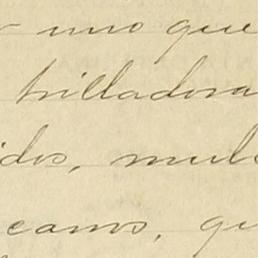 uno que
trilladora
idos, mul
canos, qu